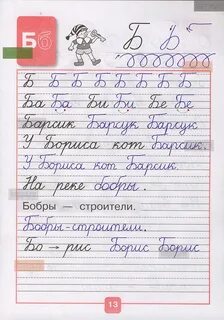 Бб Б Б
Б Б Б Б Б Б Б Б
Ба Ба Би Би Бе Бе
Барсик Барсук Барсук
У Бориса кот Барсик.
У Бориса кот Барсик.
На реке бобры.
Бобры — строители.
Бобры-строители.
Бо→рис Борис Борис
13